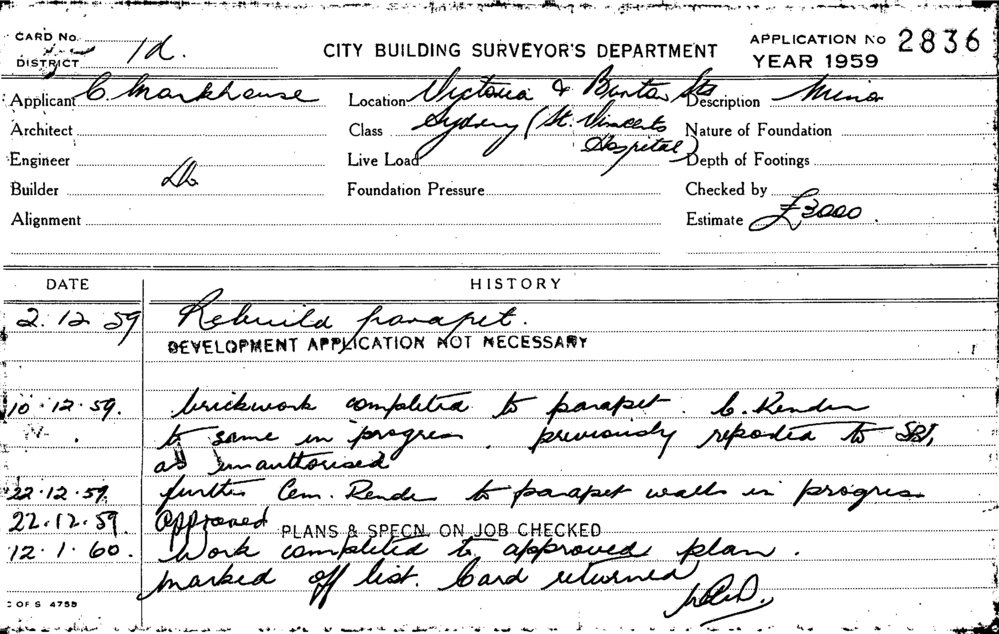 CARD No.
DISTRICT 1d.
CITY BUILDING SURVEYOR'S DEPARTMENT
APPLICATION No 2836
YEAR 1959
Applicant C. Markhouse
Location Victoria & Burton Sts
Description Minor
Architect
Class Sydney (St. Vincents
Hospital)
Nature of Foundation
Engineer
Live Load
Depth of Footings
Builder Do
Foundation Pressure
Checked by
Alignment
Estimate £3000.
DATE HISTORY
2.12.59 Rebuild parapet.
DEVELOPMENT APPLICATION NOT NECESSARY
10.12.59. brickwork completed to parapet. C. Render
to same in progress. previously reported to SBI,
as unauthorised
22.12.59. further Cem. Render to parapet walls in progress
22.12.59. Approved PLANS & SPECN. ON JOB CHECKED
12.1.60. Work completed to approved plan.
marked off list. Card returned
C OF S 4759